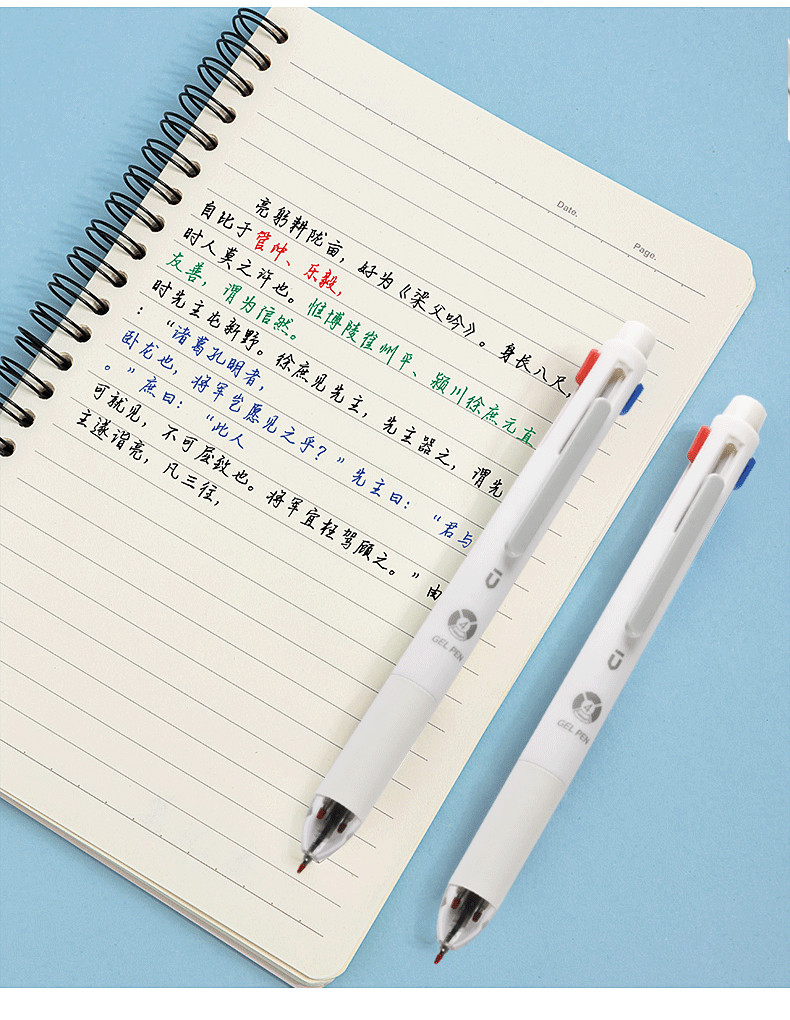 Date.
Page.
亮躬耕陇亩，好为《梁父吟》。身长八尺，
自比于管仲、乐毅，
时人莫之许也。惟博陵崔州平、颍川徐庶元直
友善，谓为信然。
时先主屯新野。徐庶见先主，先主器之，谓先
：“诸葛孔明者，
卧龙也，将军岂愿见之乎？”先主曰：“君与
。”庶曰：“此人
可就见，不可屈致也。将军宜枉驾顾之。”由
主遂诣亮，凡三往，
4
GEL PEN
4
GEL PEN